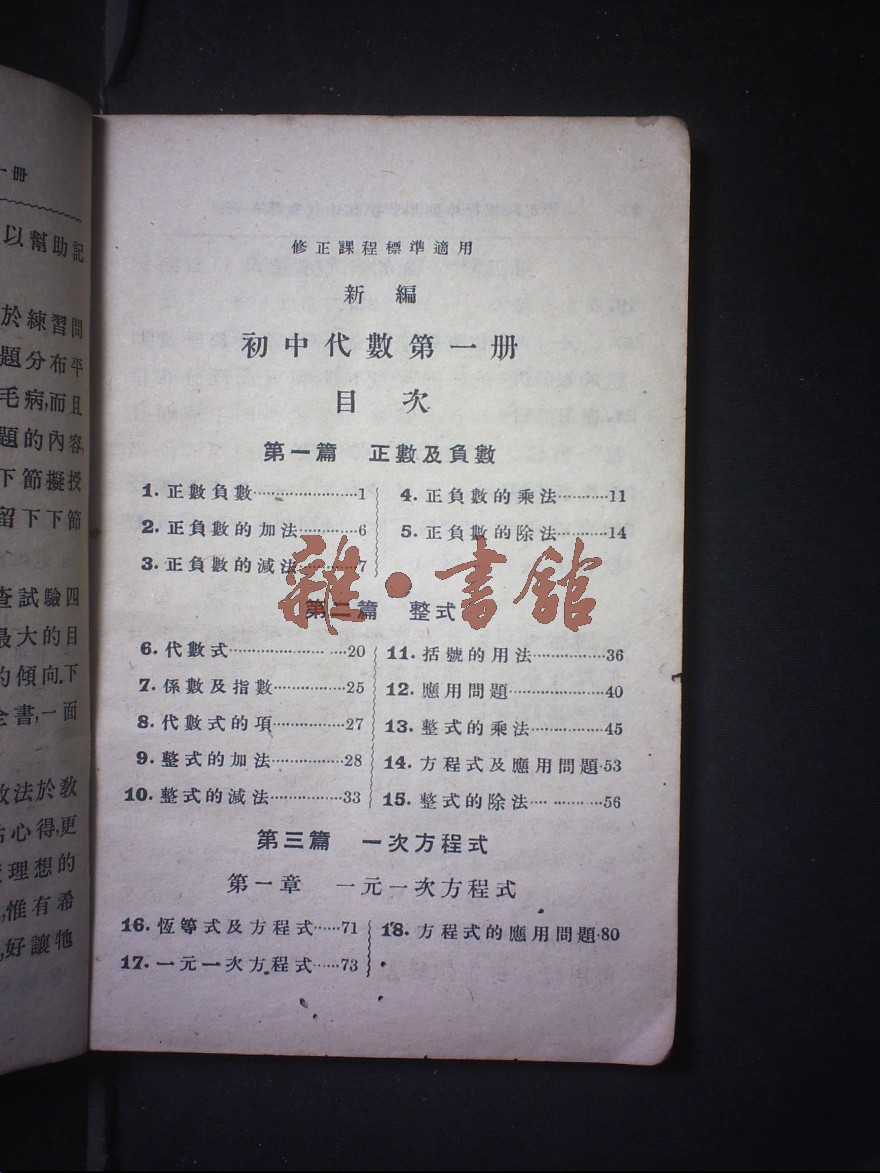 一册
以幫助記
於練習問
題分布平
毛病,而且
題的內容,
下節擬授
留下下節
查試驗四
最大的目
的傾向.下
全書,一面
教法於教
心得,更
理想的
,惟有希
,好讓牠
修正課程標準適用
新編
初中代數第一册
目次
第一篇 正數及負數
1.正數負數……………………1
2.正負數的加法…………6
3.正負數的減法…………7
4.正負數的乘法…………11
5.正負數的除法…………14
第二篇 整式
6.代數式……………………20
7.係數及指數……………25
8.代數式的項……………27
9.整式的加法……………28
10.整式的減法……………33
11.括號的用法……………36
12.應用問題………………40
13.整式的乘法……………45
14.方程式及應用問題·53
15.整式的除法……………56
第三篇 一次方程式
第一章 一元一次方程式
16.恆等式及方程式……71
17.一元一次方程式……73
18.方程式的應用問題·80
雜·書館